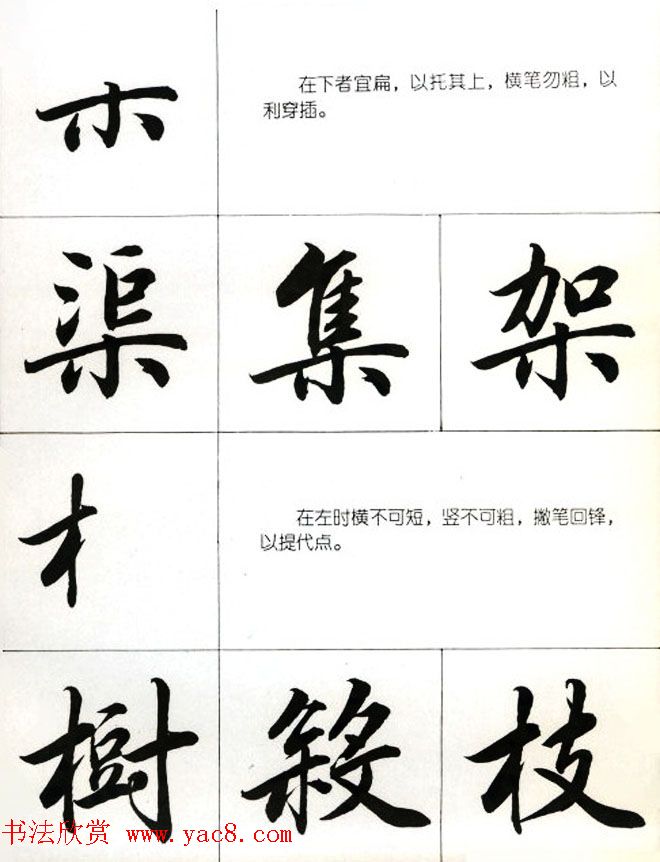 木
在下者宜扁，以托其上，横笔勿粗，以
利穿插。
渠 集 架
木
在左时横不可短，竖不可粗，撇笔回锋，
以提代点。
樹 枝
书法欣赏 www.yac8.com